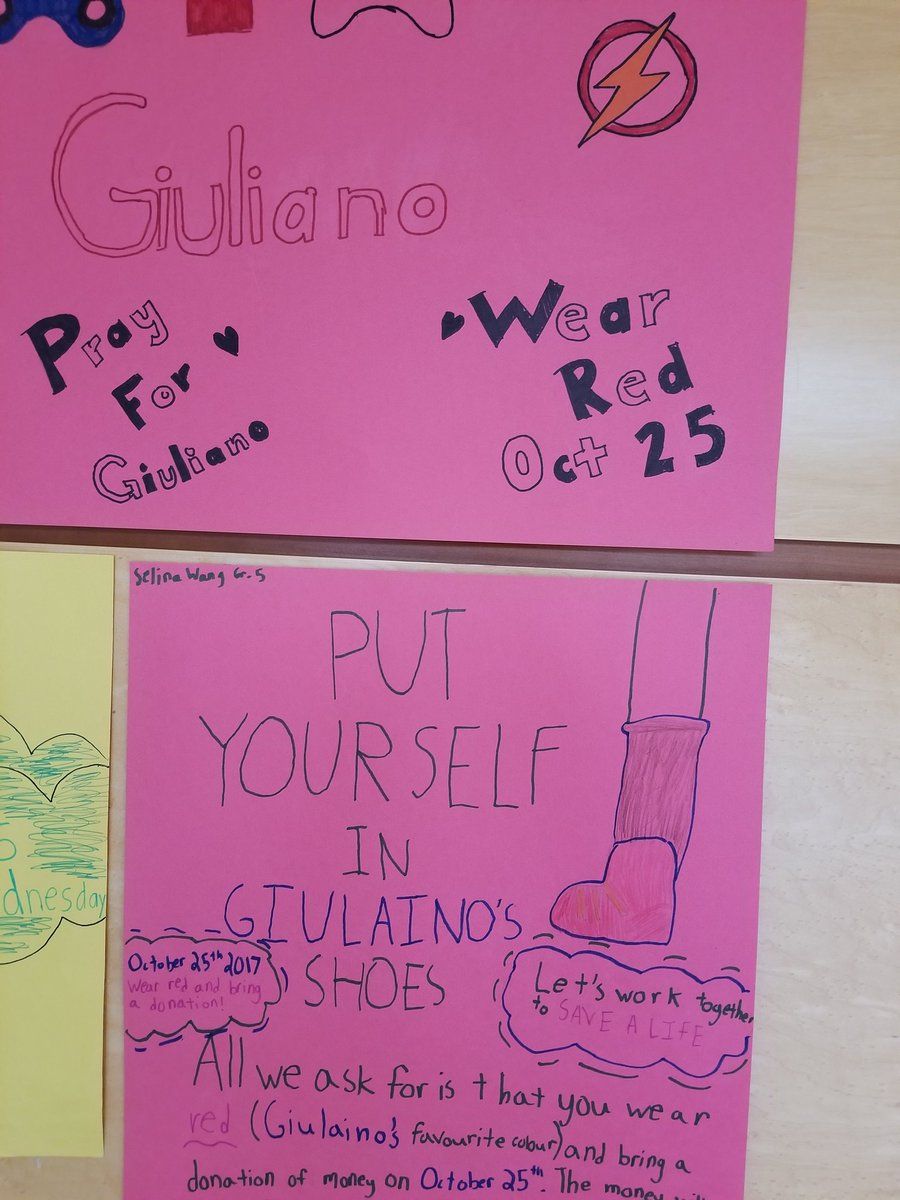 Giuliano
Pray
For
Giuliano
Wear
Red
Oct 25
Selina Wang Gr.5
PUT
YOURSELF
IN
GIULAINO'S
SHOES
October 25th 2017
Wear red and bring
a donation!
Let's work together
to SAVE A LIFE
All we ask for is that you wear
red (Giulaino's favourite colour) and bring a
donation of money on October 25th. The money
dnesday